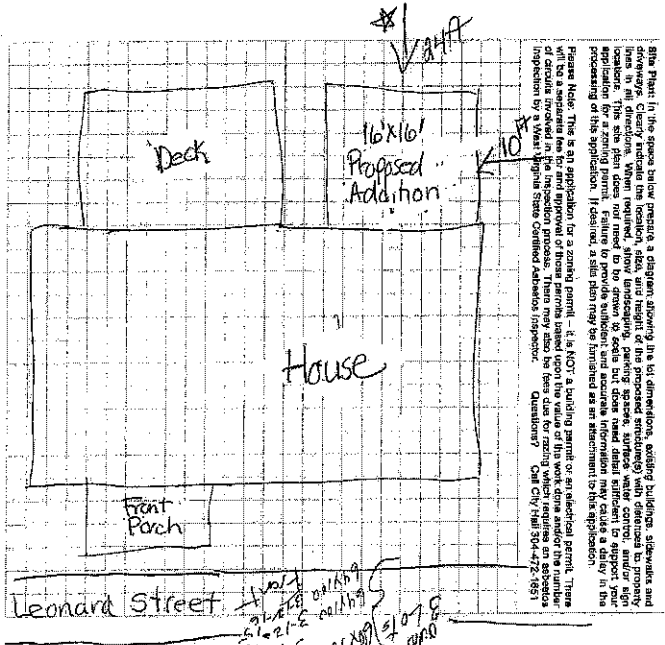 Site Plan: In the space below prepare a diagram showing the lot dimensions, existing buildings, sidewalks and
driveways. Clearly indicate the location, size, and height of the proposed structure(s) with distances to property
lines in all directions. When required, show landscaping, parking spaces, surface water control, and/or sign
locations. This site plan does not need to be drawn to scale but does need detail sufficient to support your
application for a zoning permit. Failure to provide sufficient and accurate information may cause a delay in the
processing of this application. If desired, a site plan may be furnished as an attachment to this application.
Please Note: This is an application for a zoning permit – it is NOT a building permit or an electrical permit. There
will be a separate fee for and approval of those permits based upon the value of the work done and/or the number
of circuits involved in the inspection process. There may also be fees due for razing which requires an asbestos
inspection by a West Virginia State Certified Asbestos Inspector. Questions? Call City Hall 304-472-1651
24ft
Deck
16'X16'
Proposed
Addition
10ft
House
Front
Porch
Leonard Street
3 Lots